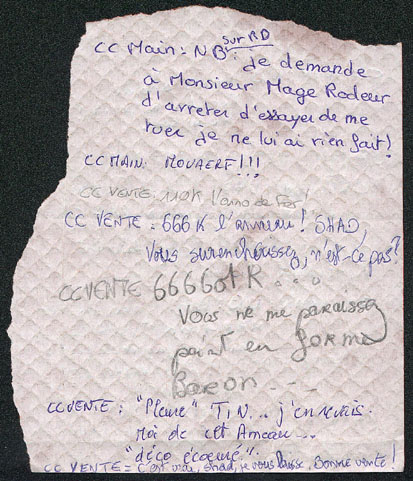 CC Main: NB sur RD: je demande
à Monsieur Mage Rodeur
d'arreter d'essayer de me
tuer je ne lui ai rien fait!
CC MAIN: MOUAERF!!!
CC VENTE: 110K l'ano de Fer!
CC VENTE: 666 K l'anneau! SHAD,
Vous surenchérissez, n'est-ce pas?
CC VENTE K...
Vous ne me paraissez
point en forme
Baron...
CC VENTE: "Pleure" TIN... j'en
moi de cet Anneau...
"déço écoeuré".
CC VENTE= C'est vrai, Shad, je vous laisse, Bonne vente!